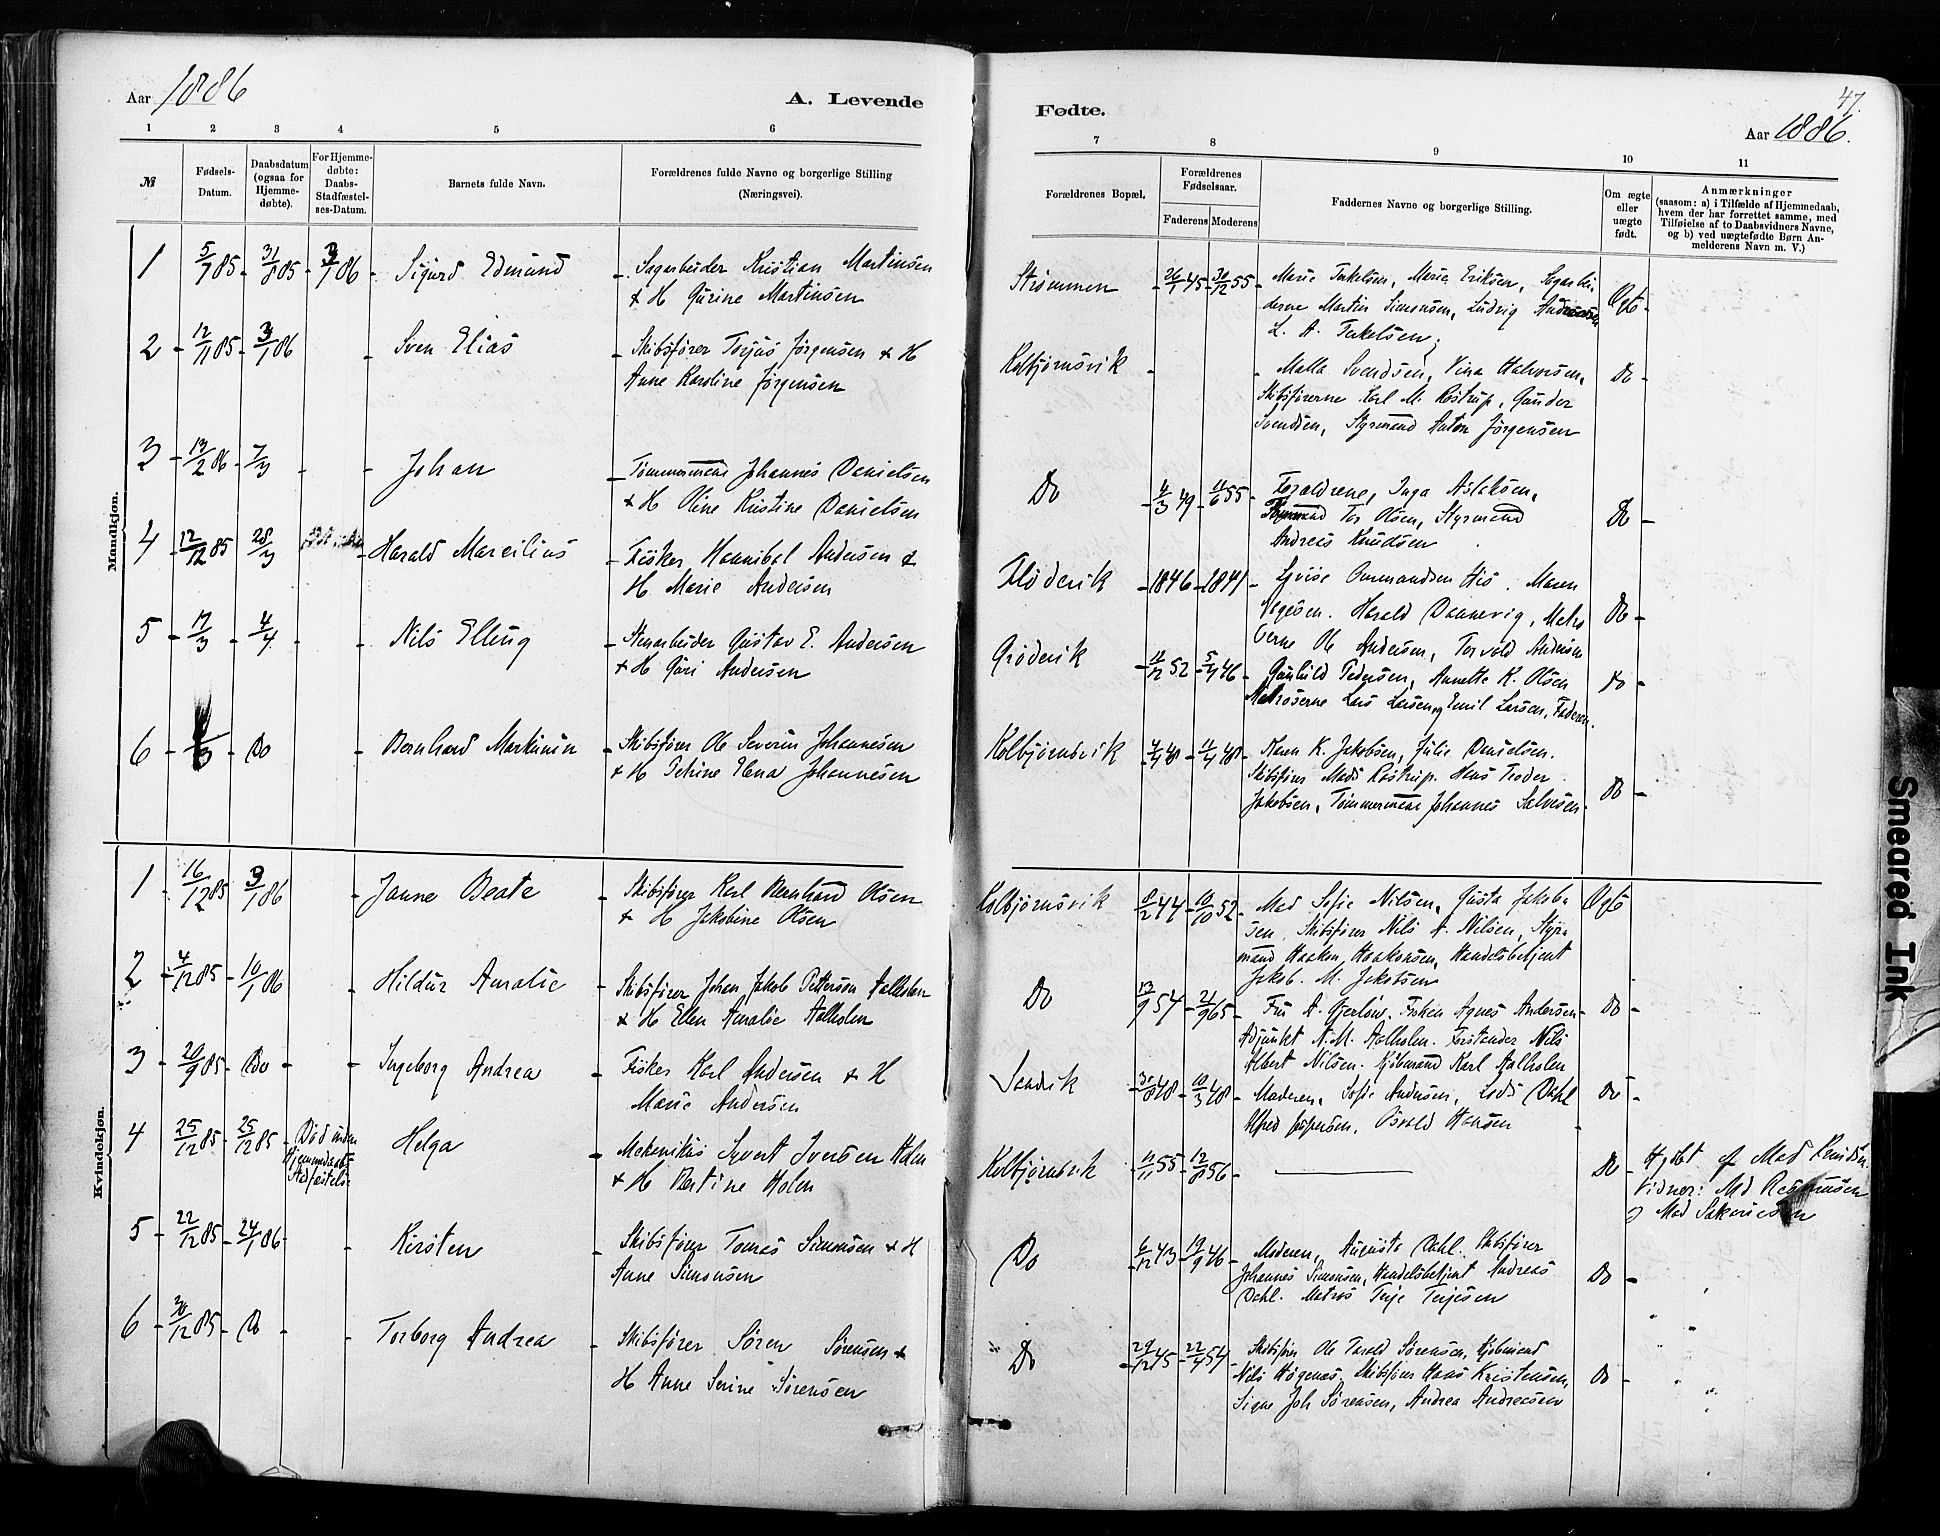 Aar 1886
A. Levende
1 2 3 4 5 6
№
Fødsels-
Datum.
Daabsdatum
(ogsaa for
Hjemme-
døbte).
For Hjemme-
døbte:
Daabs-
Stadfæstel-
ses-Datum.
Barnets fulde Navn.
Forældrenes fulde Navne og borgerlige Stilling
(Næringsvei).
Mandkjøn.
1 5/7 85 31/8 85 3/1 86 Sigurd Edmund Sagarbeider Kristian Martinsen
& H Gurine Martinsen
2 12/11 85 3/1 86 Sven Elias Skibsfører Torjus Jørgensen & H
Anne Karoline Jørgensen
3 13/2 86 7/3 Johan Tømmermand Johannes Danielsen
& H Oline Kristine Danielsen
4 12/12 85 28/3 Harald Marcilius Fisker Hannibal Andersen &
H Marie Andersen
5 17/3 4/4 Nils Elling Stenarbeider Gustav E. Andersen
& H Guri Andersen
6 /3 Do Bernhard Martinius Skibsfører Ole Severin Johannesen
& H Petrine Elena Johannesen
Kvindekjøn.
1 16/12 85 3/1 86 Janne Beate Skibsfører Karl Bernhard Olsen
& H Jakobine Olsen
2 4/12 85 10/1 86 Hildur Amalie Skibsfører Johan Jakob Pettersen Aalholm
& H Ellen Amalie Aalholm
3 20/9 85 Do Ingeborg Andrea Fisker Karl Andersen & H
Marie Andersen
4 25/12 85 25/12 85 Død inden
Hjemmedaabs
Stadfæstelse
Helga Mekanikus Syvert Iversen Holm
& H Bertine Holm
5 22/12 85 24/1 86 Kirsten Skibsfører Tomas Simonsen & H
Anne Simonsen
6 30/12 85 Do Torborg Andrea Skibsfører Søren Sørensen &
H Anne Serine Sørensen
Fødte.
47.
Aar 1886.
7 8 9 10 11
Forældrenes Bopæl.
Forældrenes
Fødselsaar.
Faderens Moderens
Faddernes Navne og borgerlige Stilling.
Om ægte
eller
uægte
født.
Anmærkninger
(saasom: a) i Tilfælde af Hjemmedaab,
hvem der har forrettet samme, med
Tilføielse af to Daabsvidners Navne,
og b) ved uægtefødte Børn An-
melderens Navn m. V.)
Strømmen 26/1 45 30/12 55 Marie Terkelsen, Maria Eriksen, Sagarbei
derne Martin Simonsen, Ludvig Andreassen Ægte
L. A. Terkelsen,
Kolbjørnsvik Malla Svendsen, Vina Halvorsen, Do
Skibsførerne Karl M. Rostrup, Gunder
Svendsen, Styrmand Anton Jørgensen
Do 4/3 49 11/6 55 Forældrene, Inga Aslaksen,
Tor Olsen, Styrmand Do
Andreas Knudsen
Fløderik 1846 1841 Lovise Osmundsen His. Maren
Harald Dannevig, Matro Do
serne Ole Andersen, Torvald Andersen
Grøderik 11/12 52 5/4 46 Gunhild Pedersen, Annette K. Olsen Do
Matroserne Lars Larsen og Emil Larsen, Faderen.
Kolbjørnsvik 4/4 48 11/4 48 Karen K. Jakobsen, Julie Danielsen.
Skibsfører Mads Rostrup. Hans Peder
Jakobsen, Tømmermand Johannes Salvesen. Do
Kolbjørnsvik 8/2 44 10/10 52 Mad Sofie Nilsen, Gusta Jakob Ægte
sen, Skibsfører Nils A. Nilsen, Styr
mand Haaken Haakensen, Handelsbetjent
Jakob. M. Jakobsen
Do 13/9 54 21/9 65 Fru A. Gjerløw. Frøken Agnes Andersen Do
Adjunkt N. M. Aalholm. Forstander Nils
Albert Nilsen. Kjøbmand Karl Aalholm
Sandvik 31/8 48 10/3 48 Moderen, Sofie Andersen, Lovis Dahl Do
Alfred Jespersen, Osvald Hansen
Kolbjørnsvik 11/11 55 12/8 56 Do Hjdbt af Mad Knudsen
Vidner: Mad Rasmussen
og Mad Sakariesen
Do 6/12 43 19/9 46 Moderen, Augusta Dahl. Skibsfører
Johannes Simonsen, Handelsbetjent Andreas Do
Dahl. Matros Terje Terjesen
Do 29/12 45 22/4 54 Skibsfører Ole Tarald Sørensen, Kjøbmand
Nils Høgenæs, Skibsfører Hans Kristensen, Do
Signe Joh Sørensen, Andrea Andreasen
Smeared Ink